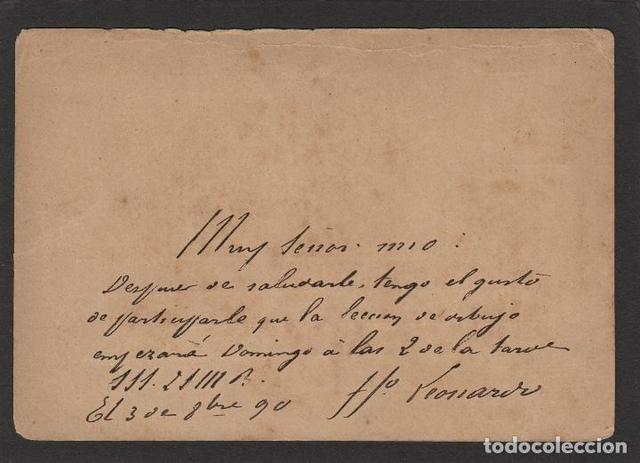 Muy Señor mio:
Despues de saludarle, tengo el gusto
de participarle que la leccion de dibujo
empezará Domingo á las 2 de la tarde
El 3 de 8bre 90
Leonardo
todocoleccion